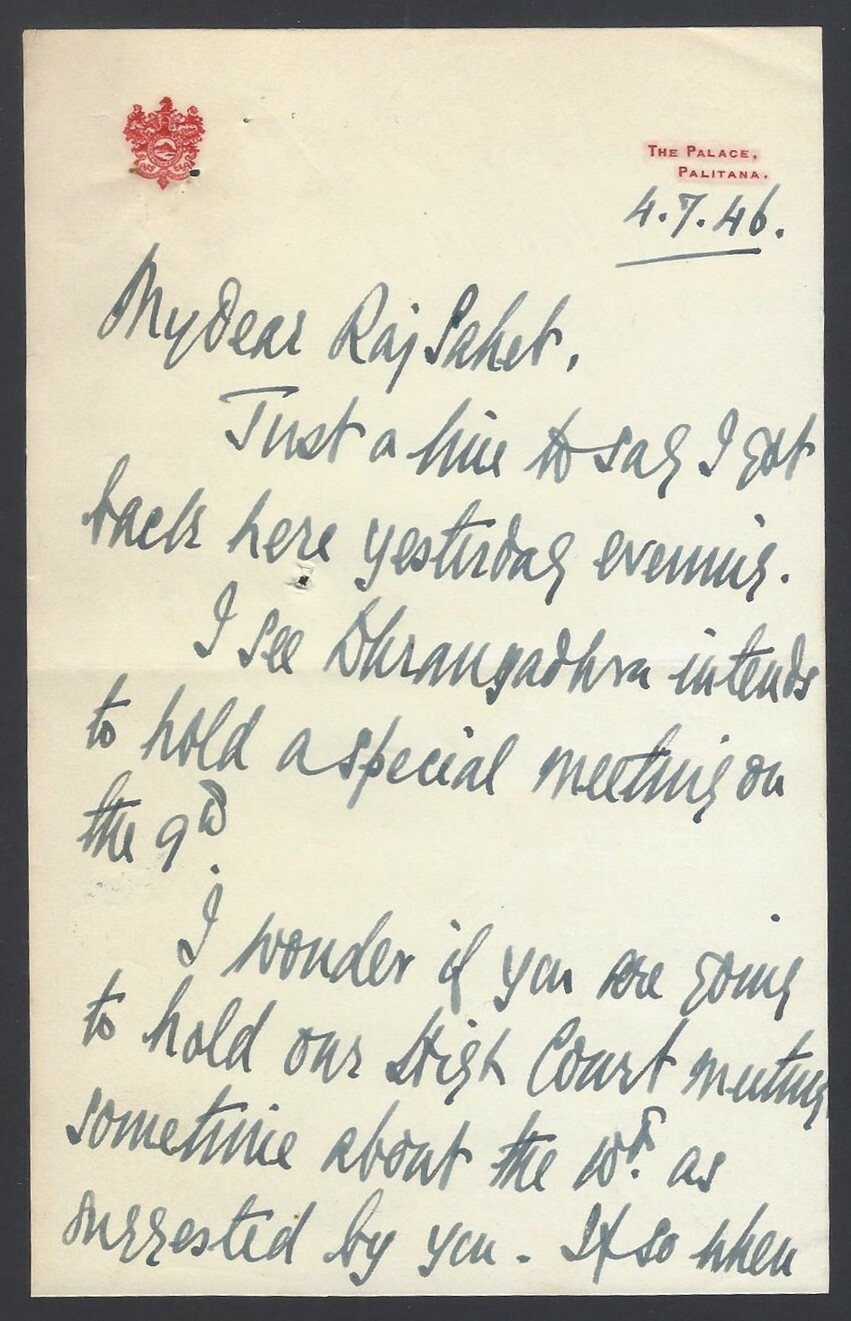 THE PALACE,
PALITANA.
4.7.46.
My Dear Raj Saheb,
Just a line to say I got
back here yesterday evening.
I see Dhrangadhra intends
to hold a special meeting on
the 9th.
I wonder if you are going
to hold our High Court meeting
sometime about the 10th. as
suggested by you - If so when